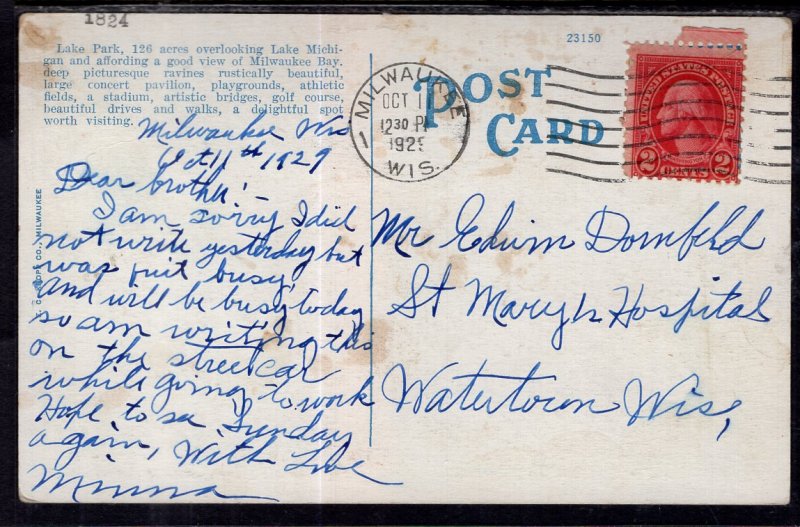 1824
Lake Park, 126 acres overlooking Lake Michi-
gan and affording a good view of Milwaukee Bay.
deep picturesque ravines rustically beautiful,
large concert pavilion, playgrounds, athletic
fields, a stadium, artistic bridges, golf course,
beautiful drives and walks, a delightful spot
worth visiting.
Milwaukee Wis
Oct 11th 1929
Dear brother:-
I am sorry I did
not write yesterday but
was quit busy,
and will be busy today
so am writing this
on the streetcar
while going to work
Hope to se Sunday
again, With Love
Minna
CO., MILWAUKEE
23150
POST
CARD
MILWAUKEE
OCT 1
12 30 P
192
WIS.
UNITED STATES POSTAGE
2 2
Mr Edwin Dornfeld
St Mary's Hospital
Watertown Wis,